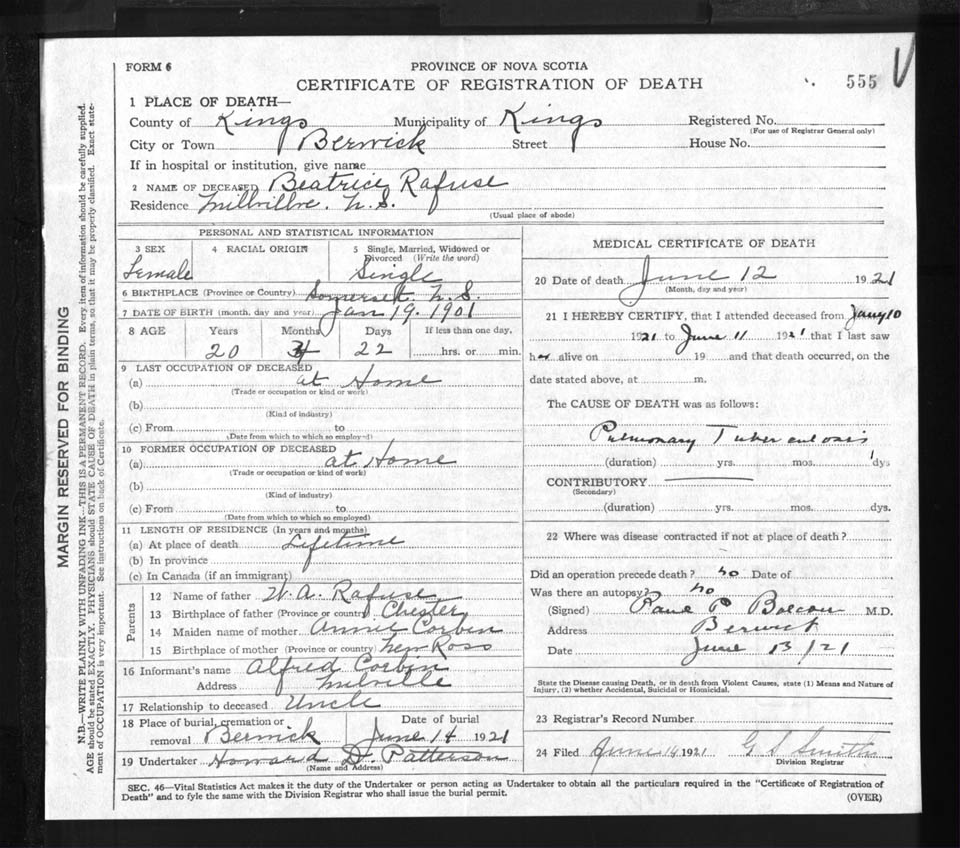 FORM 6
PROVINCE OF NOVA SCOTIA
CERTIFICATE OF REGISTRATION OF DEATH
555
1 PLACE OF DEATH—
County of Kings Municipality of Kings Registered No.
(For use of Registrar General only)
City or Town Berwick Street House No.
If in hospital or institution, give name
2 NAME OF DECEASED Beatrice Rafuse
Residence Millville. N.S.
(Usual place of abode)
PERSONAL AND STATISTICAL INFORMATION
3 SEX 4 RACIAL ORIGIN 5 Single, Married, Widowed or
Divorced (Write the word)
Female Single
6 BIRTHPLACE (Province or Country) Somerset. N.S.
7 DATE OF BIRTH (month, day and year) Jan 19. 1901
8 AGE Years Months Days If less than one day,
20 4 22 hrs. or min.
9 LAST OCCUPATION OF DECEASED
(a) at Home
(Trade or occupation or kind or work)
(b)
(Kind of industry)
(c) From to
(Date from which to which so employed)
10 FORMER OCCUPATION OF DECEASED
(a) at Home
(Trade or occupation or kind of work)
(b)
(Kind of industry)
(c) From to
(Date from which to which so employed)
11 LENGTH OF RESIDENCE (In years and months)
(a) At place of death Lifetime
(b) In province
(c) In Canada (if an immigrant)
Parents
12 Name of father W. A. Rafuse
13 Birthplace of father (Province or country) Chester
14 Maiden name of mother Annie Corbin
15 Birthplace of mother (Province or country) New Ross
16 Informant's name Alfred Corbin
Address Milville
17 Relationship to deceased Uncle
18 Place of burial, cremation or Date of burial
removal Berwick June 14 1921
19 Undertaker Howard D. Patterson
(Name and Address)
MEDICAL CERTIFICATE OF DEATH
20 Date of death June 12 1921
(Month, day and year)
21 I HEREBY CERTIFY, that I attended deceased from Jany 10
1921 to June 11 1921 that I last saw
her alive on 19 and that death occurred, on the
date stated above, at m.
The CAUSE OF DEATH was as follows:
Pulmonary Tuberculosis
(duration) yrs. mos. dys
CONTRIBUTORY
(Secondary)
(duration) yrs. mos. dys.
22 Where was disease contracted if not at place of death?
Did an operation precede death? no Date of
Was there an autopsy? no
(Signed) P M.D.
Address Berwick
Date June 13/21
State the Disease causing Death, or in death from Violent Causes, state (1) Means and Nature of
Injury, (2) whether Accidental, Suicidal or Homicidal.
23 Registrar's Record Number
24 Filed June 14 1921 G S Smith
Division Registrar
SEC. 46—Vital Statistics Act makes it the duty of the Undertaker or person acting as Undertaker to obtain all the particulars required in the "Certificate of Registration of
Death" and to fyle the same with the Division Registrar who shall issue the burial permit.
(OVER)
MARGIN RESERVED FOR BINDING
N.B.—WRITE PLAINLY WITH UNFADING INK—THIS IS A PERMANENT RECORD. Every item of information should be carefully supplied.
AGE should be stated EXACTLY. PHYSICIANS should STATE CAUSE OF DEATH in plain terms, so that it may be properly classified. Exact state-
ment of OCCUPATION is very important. See instructions on back of Certificate.